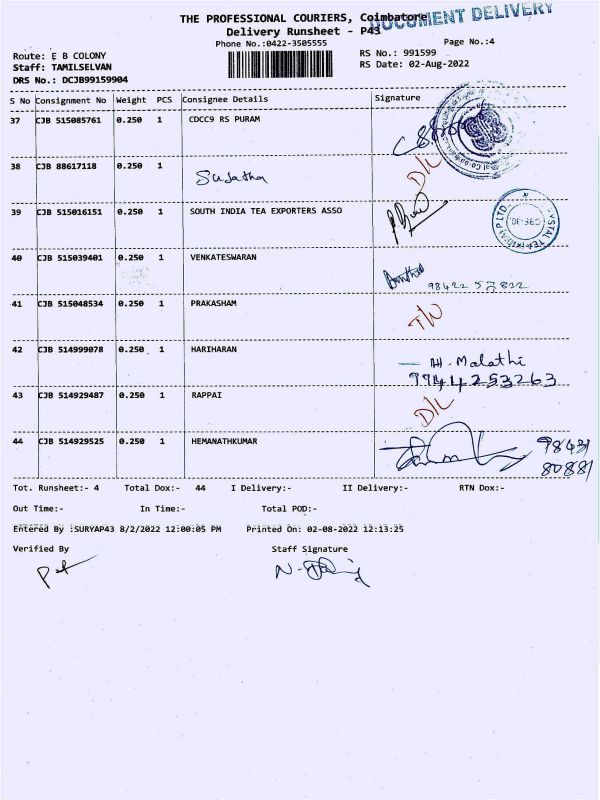 THE PROFESSIONAL COURIERS, Coimbatore
DOCUMENT DELIVERY
Delivery Runsheet - P43
Phone No.:0422-3505555
Page No.:4
Route: E B COLONY
RS No.: 991599
Staff: TAMILSELVAN
RS Date: 02-Aug-2022
DRS No.: DCJB99159904
S No Consignment No Weight PCS Consignee Details Signature
37 CJB 515085761 0.250 1 CDCC9 RS PURAM
38 CJB 88617118 0.250 1 Sujatha D/L
39 CJB 515016151 0.250 1 SOUTH INDIA TEA EXPORTERS ASSO
40 CJB 515039401 0.250 1 VENKATESWARAN
98422 52832
41 CJB 515048534 0.250 1 PRAKASHAM
42 CJB 514999078 0.250 1 HARIHARAN
H. Malathi
9944253263
43 CJB 514929487 0.250 1 RAPPAI D/L
44 CJB 514929525 0.250 1 HEMANATHKUMAR
98431
80881
Tot. Runsheet:- 4 Total Dox:- 44 I Delivery:- II Delivery:- RTN Dox:-
Out Time:- In Time:- Total POD:-
Entered By :SURYAP43 8/2/2022 12:00:05 PM Printed On: 02-08-2022 12:13:25
Verified By Staff Signature